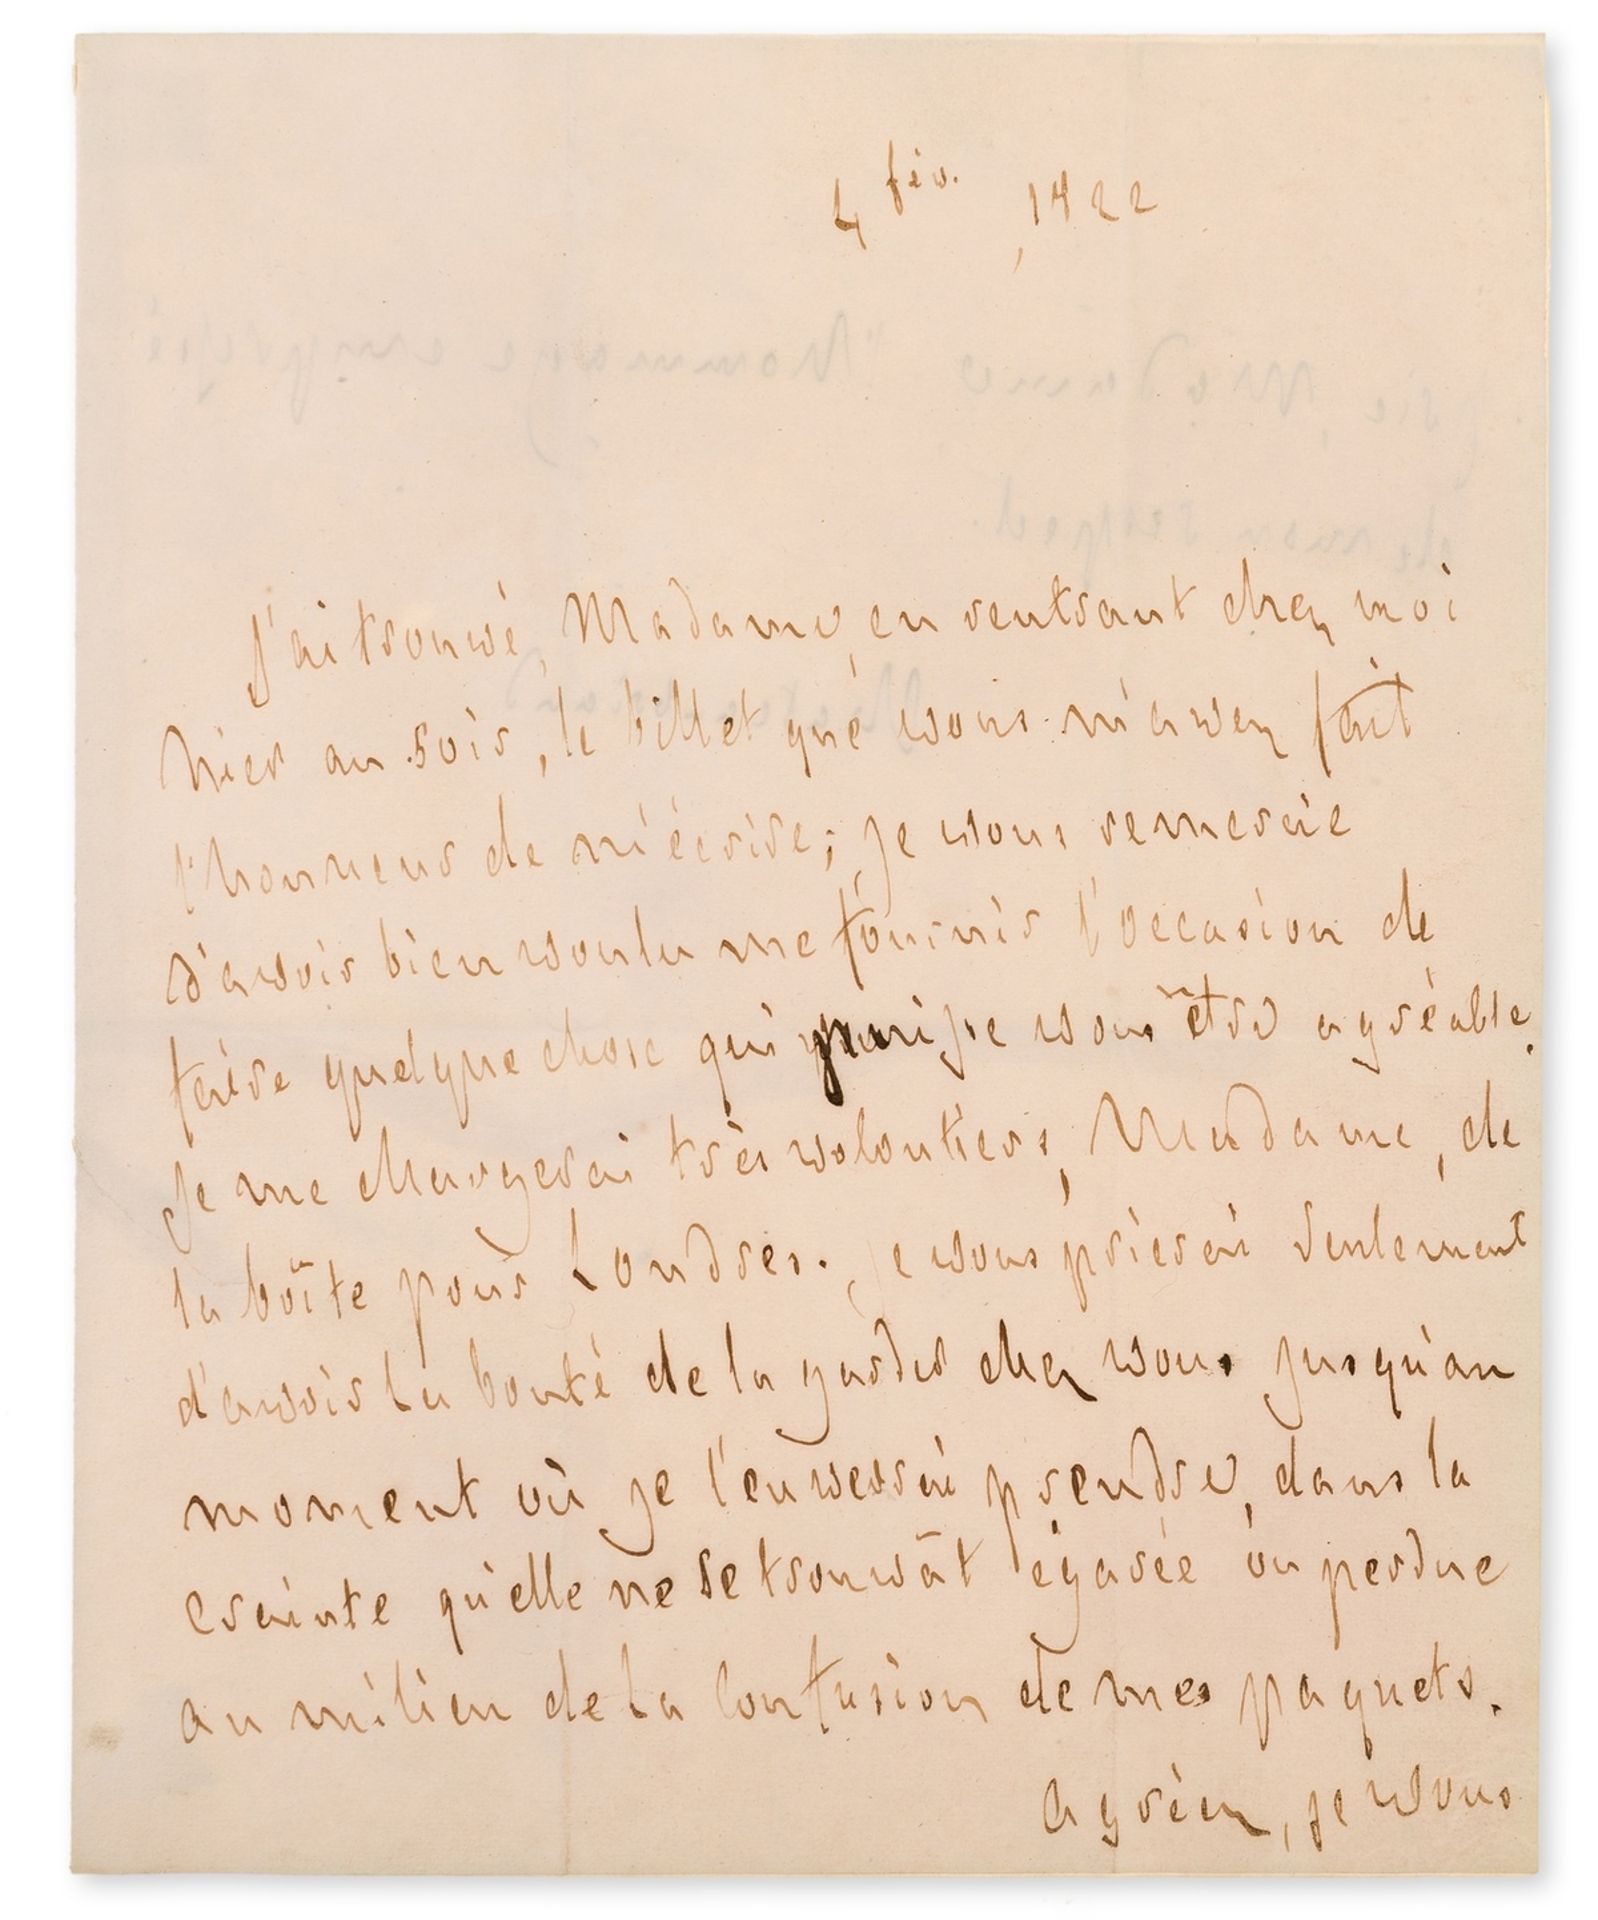 4 fév. 1822
J'ai trouvé, Madame, en rentrant chez moi
hier au soir, le billet que vous m'avez fait
l'honneur de m'écrire; je vous remercie
d'avoir bien voulu me fournir l'occasion de
faire quelque chose qui puisse vous être agréable.
Je me chargerai très volontiers, Madame, de
la boîte pour Londres. Je vous prierai seulement
d'avoir la bonté de la garder chez vous jusqu'au
moment où je l'enverrai prendre, dans la
crainte qu'elle ne se trouvât égarée ou perdue
au milieu de la confusion de mes paquets.
Agréez, je vous
prie, Madame, l'hommage empressé
de mon respect.
Chateaubriand